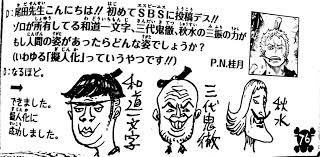 D：尾田先生こんにちは!! 初めてSBSに投稿デス!!
ゾロが所有してる和道一文字、三代鬼徹、秋水の三振の刀が
もし人間の姿があったらどんな姿でしょうか？
(いわゆる「擬人化」っていうやつです!!)
P.N.桂月
O：なるほど。
下きました。
擬人化に
成功しました。
和道一文字
三代鬼徹
秋水
76